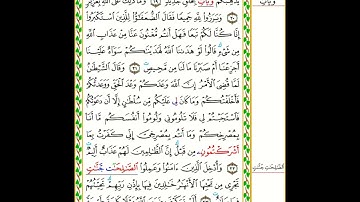 يُذْهِبْكُمْ وَيَأْتِ بِخَلْقٍ جَدِيدٍ ١٩ وَمَا ذَٰلِكَ عَلَى ٱللَّهِ بِعَزِيزٍ
٢٠ وَبَرَزُوا۟ لِلَّهِ جَمِيعًا فَقَالَ ٱلضُّعَفَٰٓؤُا۟ لِلَّذِينَ ٱسْتَكْبَرُوٓا۟
إِنَّا كُنَّا لَكُمْ تَبَعًا فَهَلْ أَنتُم مُّغْنُونَ عَنَّا مِنْ عَذَابِ ٱللَّهِ
مِن شَىْءٍ قَالُوا۟ لَوْ هَدَىٰنَا ٱللَّهُ لَهَدَيْنَٰكُمْ سَوَآءٌ عَلَيْنَآ
أَجَزِعْنَآ أَمْ صَبَرْنَا مَا لَنَا مِن مَّحِيصٍ ٢١ وَقَالَ ٱلشَّيْطَٰنُ
لَمَّا قُضِىَ ٱلْأَمْرُ إِنَّ ٱللَّهَ وَعَدَكُمْ وَعْدَ ٱلْحَقِّ وَوَعَدتُّكُمْ
فَأَخْلَفْتُكُمْ وَمَا كَانَ لِىَ عَلَيْكُم مِّن سُلْطَٰنٍ إِلَّآ أَن دَعَوْتُكُمْ
فَٱسْتَجَبْتُمْ لِى فَلَا تَلُومُونِى وَلُومُوٓا۟ أَنفُسَكُم مَّآ أَنَا۠
بِمُصْرِخِكُمْ وَمَآ أَنتُم بِمُصْرِخِىَّ إِنِّى كَفَرْتُ بِمَآ
أَشْرَكْتُمُونِ مِن قَبْلُ إِنَّ ٱلظَّٰلِمِينَ لَهُمْ عَذَابٌ أَلِيمٌ
٢٢ وَأُدْخِلَ ٱلَّذِينَ ءَامَنُوا۟ وَعَمِلُوا۟ ٱلصَّٰلِحَٰتِ جَنَّٰتٍ
تَجْرِى مِن تَحْتِهَا ٱلْأَنْهَٰرُ خَٰلِدِينَ فِيهَا بِإِذْنِ رَبِّهِمْ تَحِيَّتُهُمْ
وَيَأْتِ
ٱلصَّٰلِحَٰت جَّنَّٰتٍ